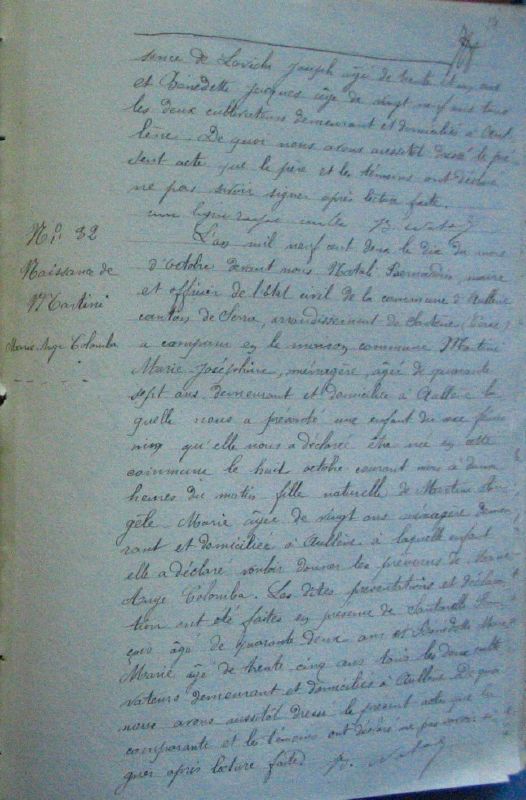 sence de Lovichi Joseph âgé de trente cinq ans
et Benedetti Jacques âgé de vingt neuf ans tous
les deux cultivateurs demeurant et domiciliés à
De quoi nous avons aussitôt dressé le pré
sent acte que le père et les témoins ont déclaré
ne pas savoir signer après lecture faite.
une ligne rayée nulle B. Natali
N° 32
Naissance de
Martini
Marie Ange Colomba
L'an mil neuf cent douze le dix du mois
d'octobre devant nous Natali Bernardin maire
et officier de l'état civil de la commune d'Aullène
canton de Serra, arrondissement de Sartène, (Corse)
a comparu en la maison commune Martini
Marie Joséphine, ménagère, âgée de quarante
sept ans demeurant et domiciliée à Aullène la
quelle nous a présenté une enfant du sexe fémi
nin qu'elle nous a déclaré être née en cette
commune le huit octobre courant mois à deux
heures du matin fille naturelle de Martini An
gèle Marie âgée de vingt ans ménagère demeu
rant et domiciliée à Aullène à laquelle enfant
elle a déclaré vouloir donner les prénoms de Marie
Ange Colomba. Les dites présentations et déclara
tion ont été faites en présence de
âgé de quarante deux ans et Benedetti
Marie âgé de trente cinq ans tous les deux culti
vateurs demeurant et domiciliés à Aullène De quoi
nous avons aussitôt dressé le présent acte que la
comparante et les témoins ont déclaré ne pas savoir si
gner après lecture faite. B. Natali